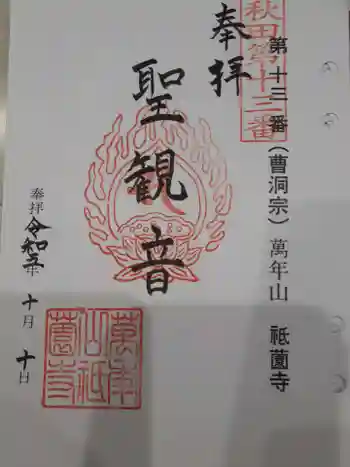 秋田第十三番
第十三番（曹洞宗）萬年山 祗園寺
奉拝
聖観音
奉拝 令和五年 十月 十日
萬年
山祗
薗寺